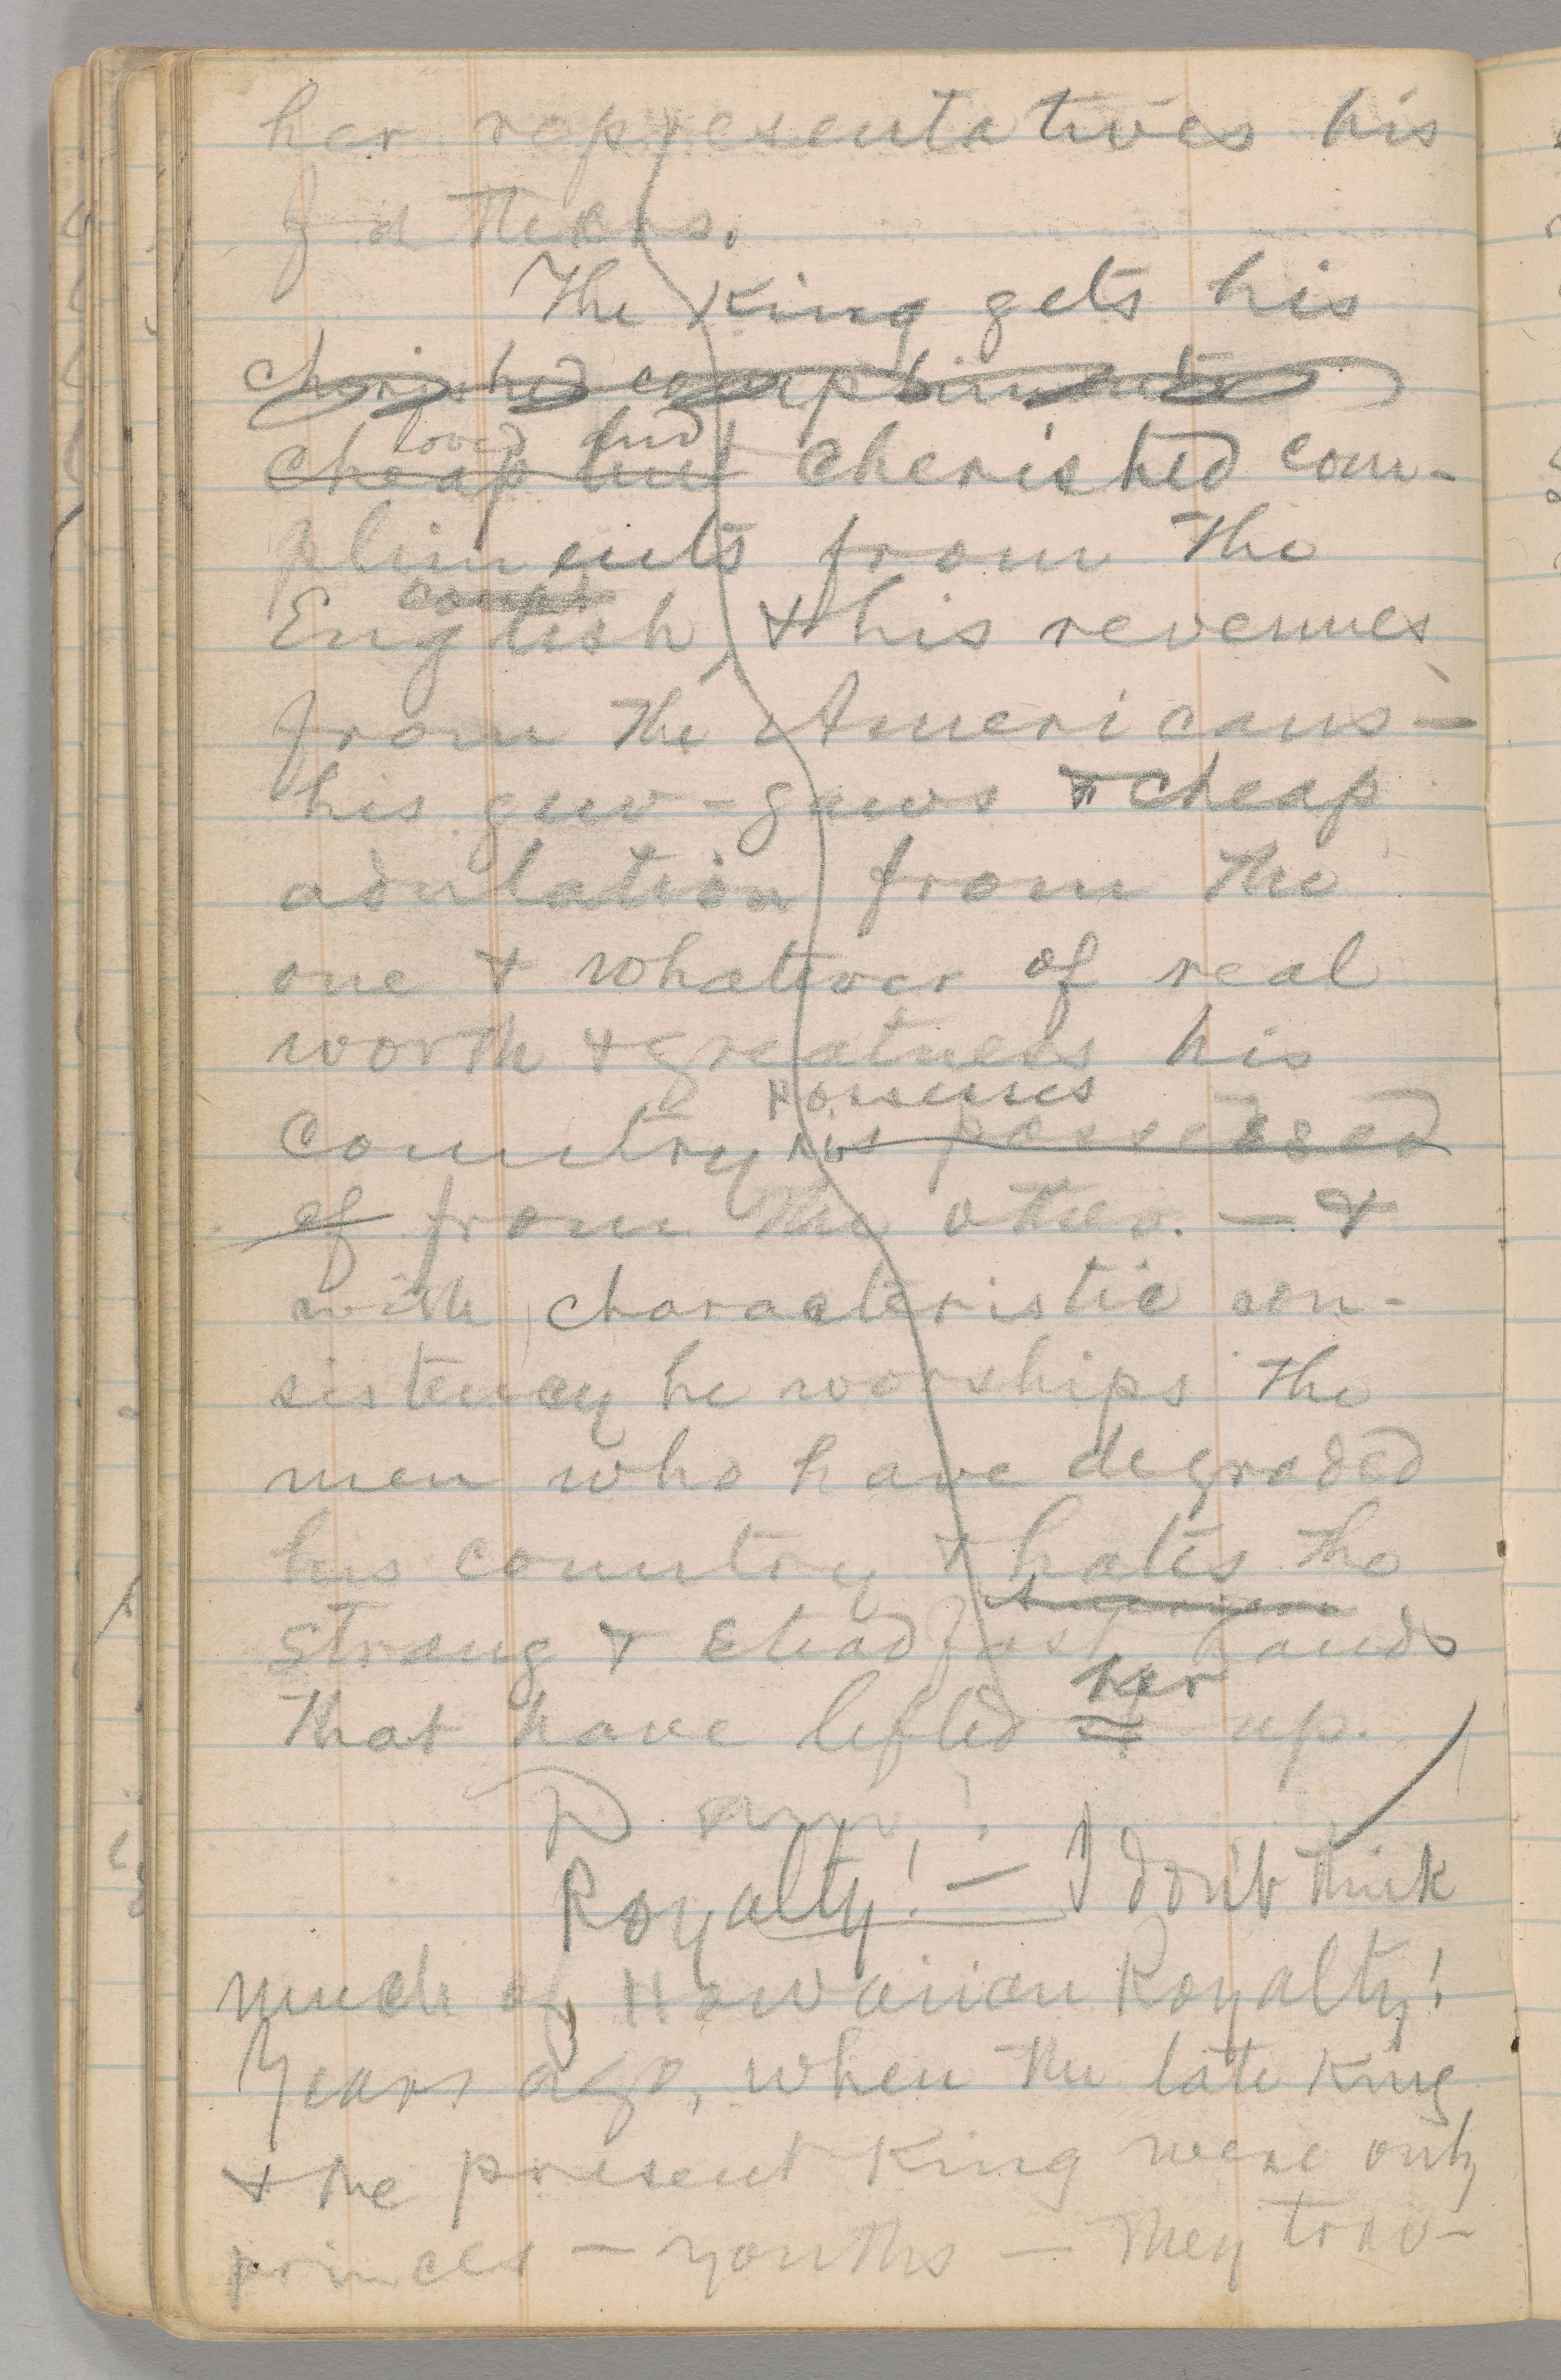 her representatives his
fathers.
The King gets his
cherished compliments
loved and
cheap but cherished com-
pliments from the
English, & his revenues
from the Americans—
his gew-gaws & cheap
adulation from the
one & whatever of real
worth & greatness his
possesses
country is possessed
of from the other. — &
with characteristic con-
sistency he worships the
men who have degraded
his country & hates the
strong & steadfast hands
her
that have lifted it up.
D
Royalty! — I don't think
much of Hawaiian Royalty!
Years ago, when the late King
& the present King were only
princes — youths — they trav-